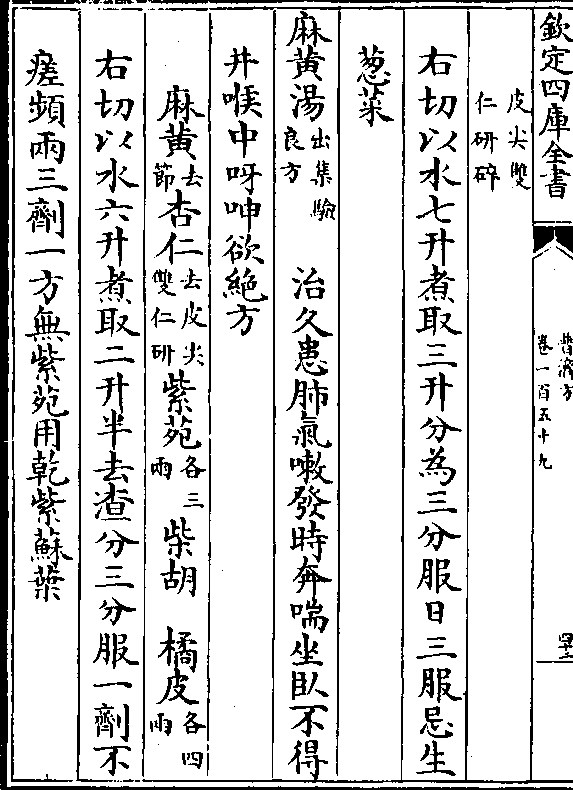 欽定四庫全書
普濟方
卷一百五十九
皮尖雙
仁研碎
右切以水七升煮取三升分為三分服日三服忌生
葱菜
麻黄湯出集驗良方 治久患肺氣嗽發時奔喘坐臥不得
并喉中呀呷欲絶方
麻黄去節杏仁去皮尖雙仁研紫苑各三兩柴胡 橘皮各四兩
右切以水六升煮取二升半去渣分三分服一劑不
瘥頻兩三劑一方無紫苑用乾紫蘇葉